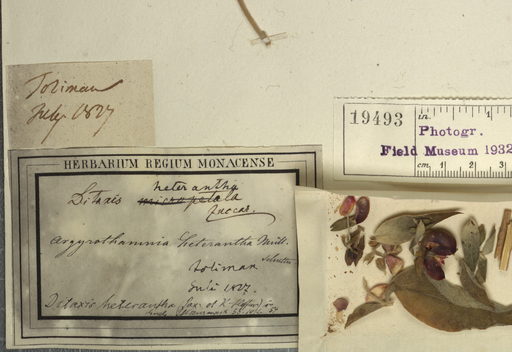 Toliman
July 1827
19493
in. 1
Photogr.
Field Museum 1932
cm. 1 2 3
HERBARIUM REGIUM MONACENSE
heterantha
Ditaxis micropetala
Zuccar.
Argyrothamnia heterantha Muell.
Toliman
Juli 1827.
Ditaxis heterantha